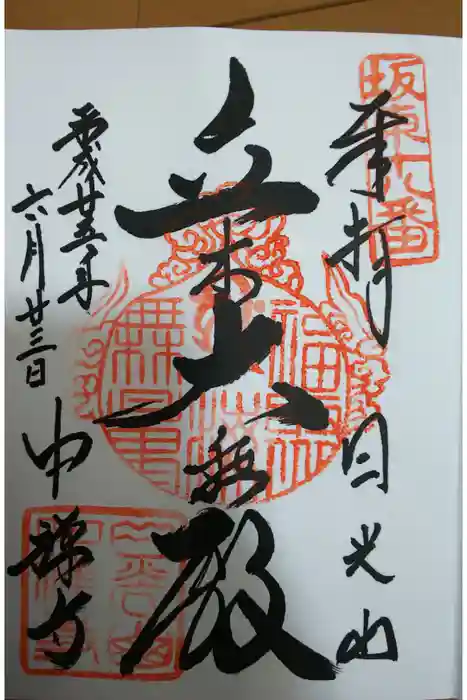 坂東十八番
奉拝 日光山
立木大悲殿
平成廿五年
六月廿三日
中禅寺